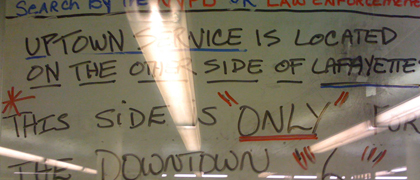 SEARCH BY THE NYPD OR LAW ENFORCEMENT
UPTOWN SERVICE IS LOCATED
ON THE OTHER SIDE OF LAFAYETTE
*THIS SIDE IS "ONLY" FOR
THE DOWNTOWN "6"